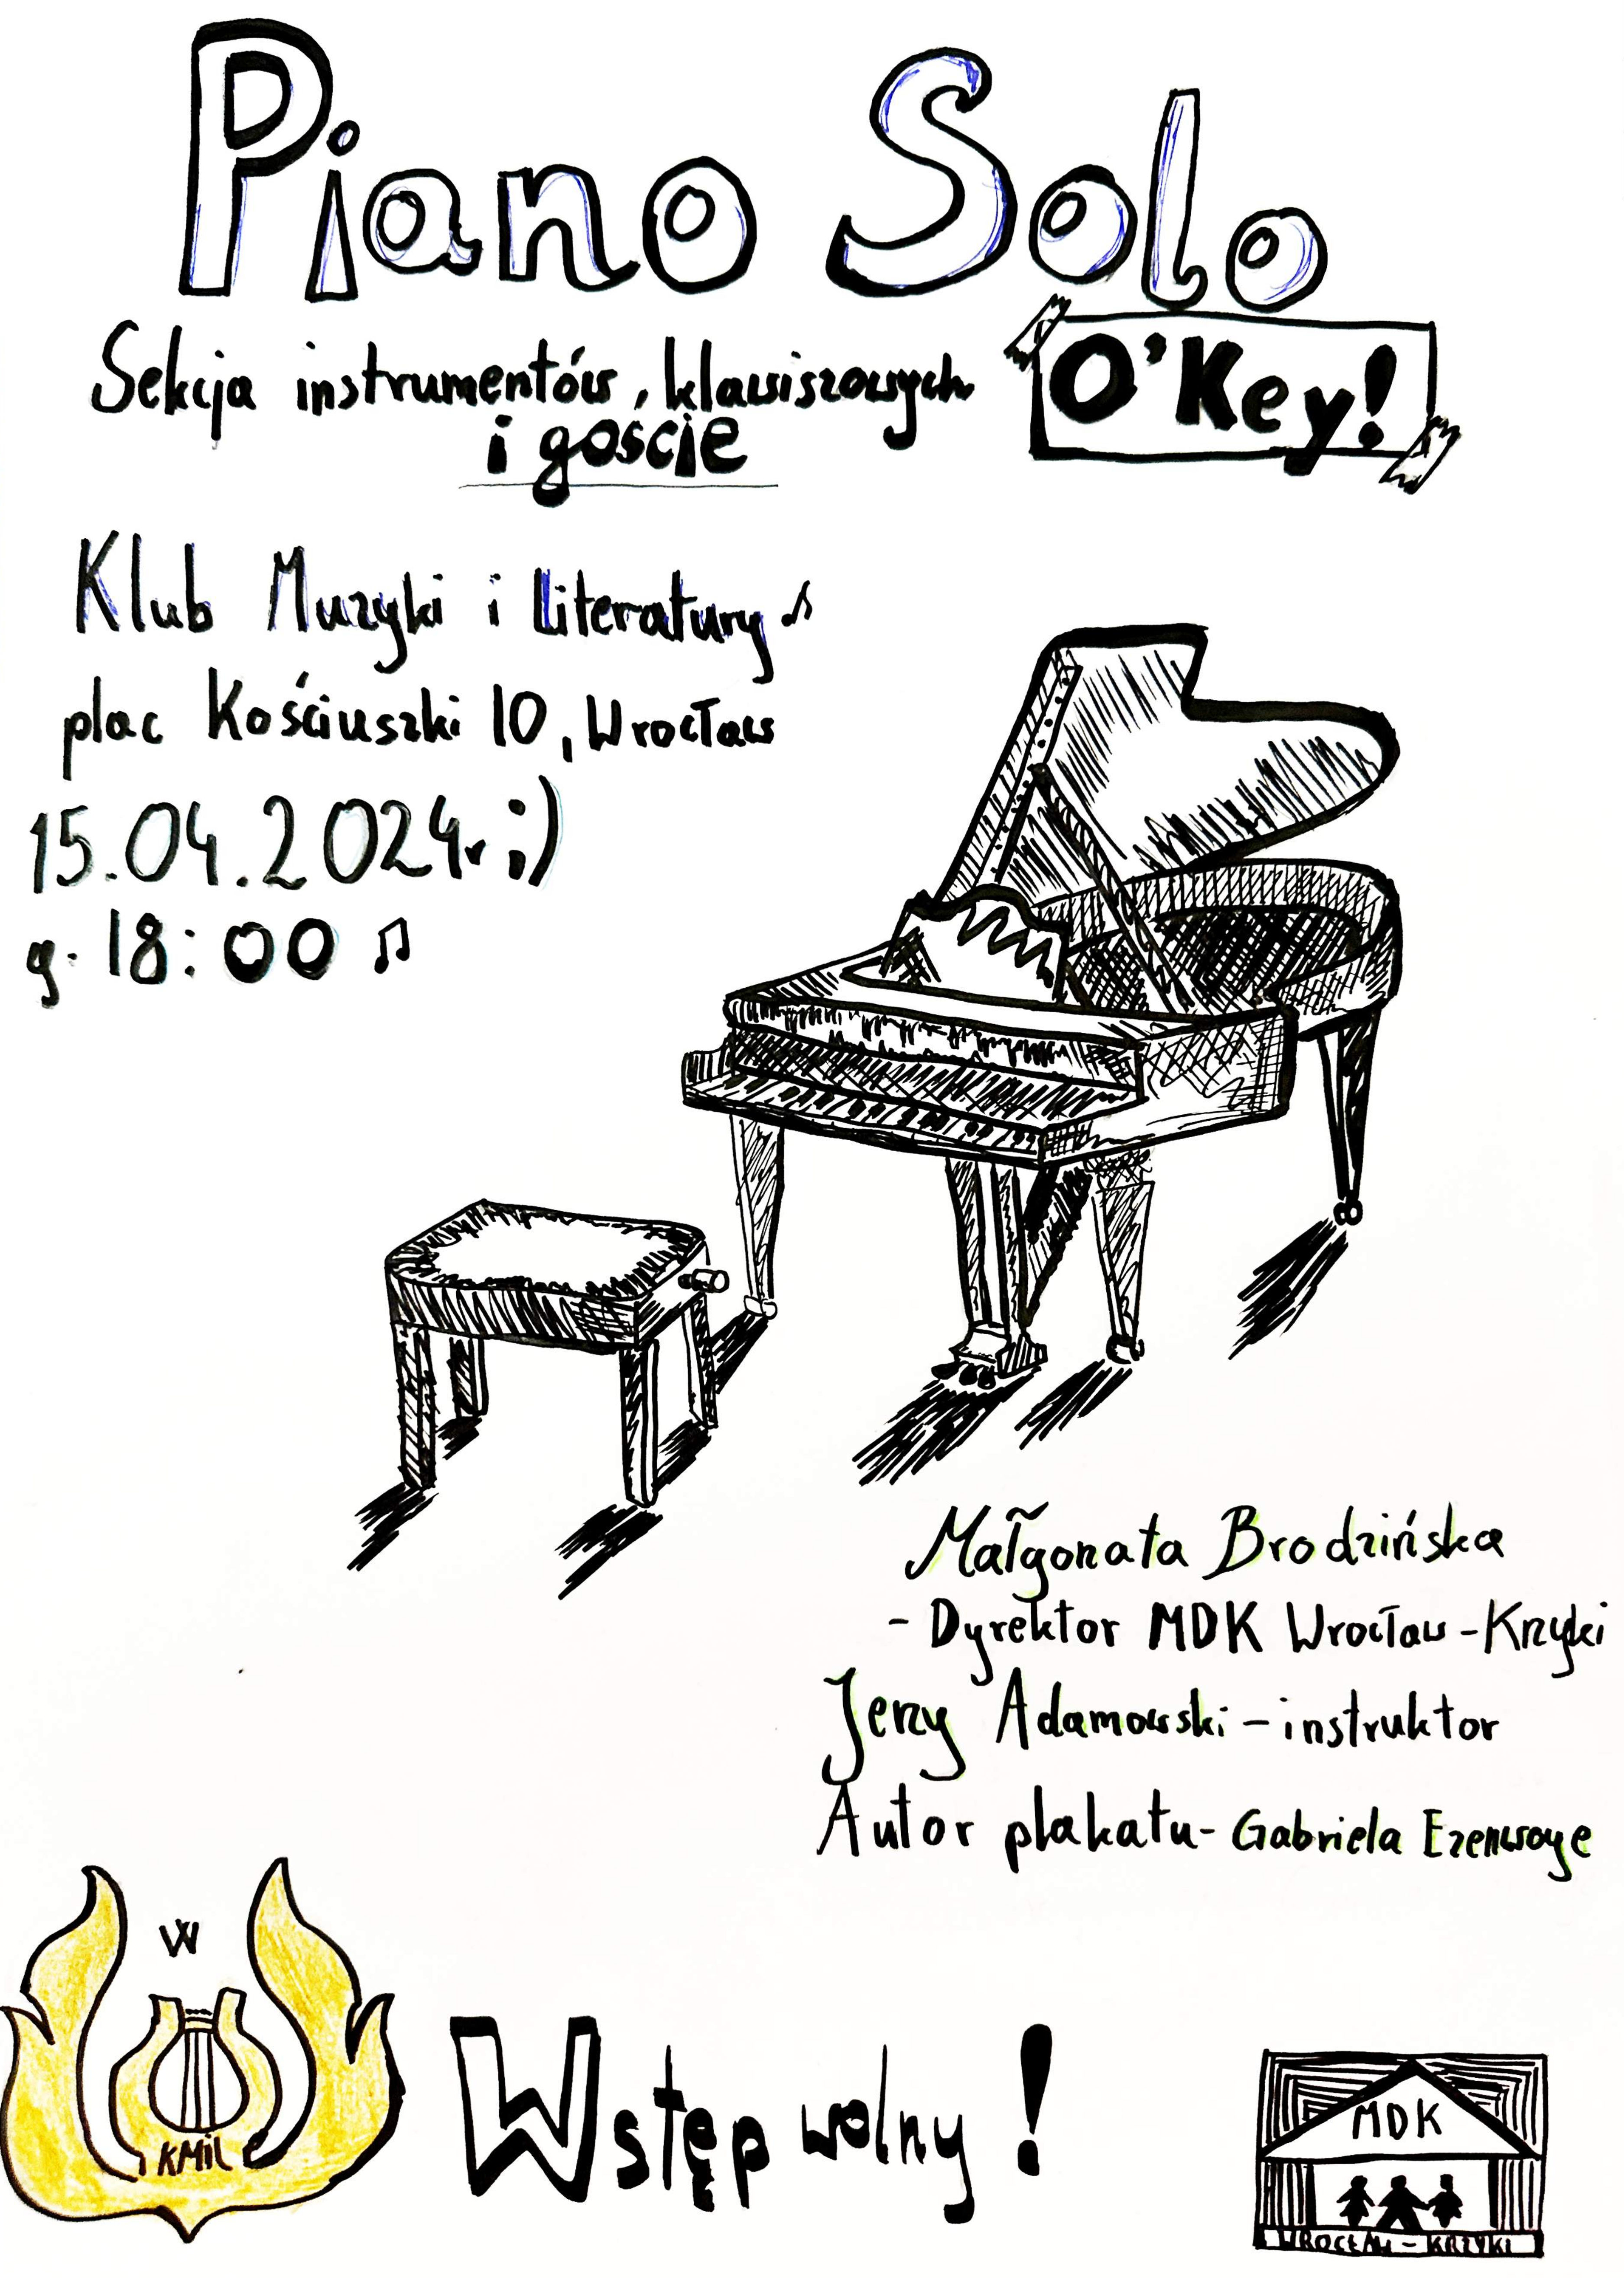 Piano Solo
Sekcja instrumentów klawiszowych
O'Key!
i goście
Klub Muzyki i Literatury
plac Kościuszki 10, Wrocław
15.04.2024r ;)
g. 18:00
Małgorzata Brodzińska
- Dyrektor MDK Wrocław - Krzyki
Jerzy Adamowski - instruktor
Autor plakatu - Gabriela Ezenwoye
W
KMiL
Wstęp wolny!
MDK
WROCŁAW - KRZYKI